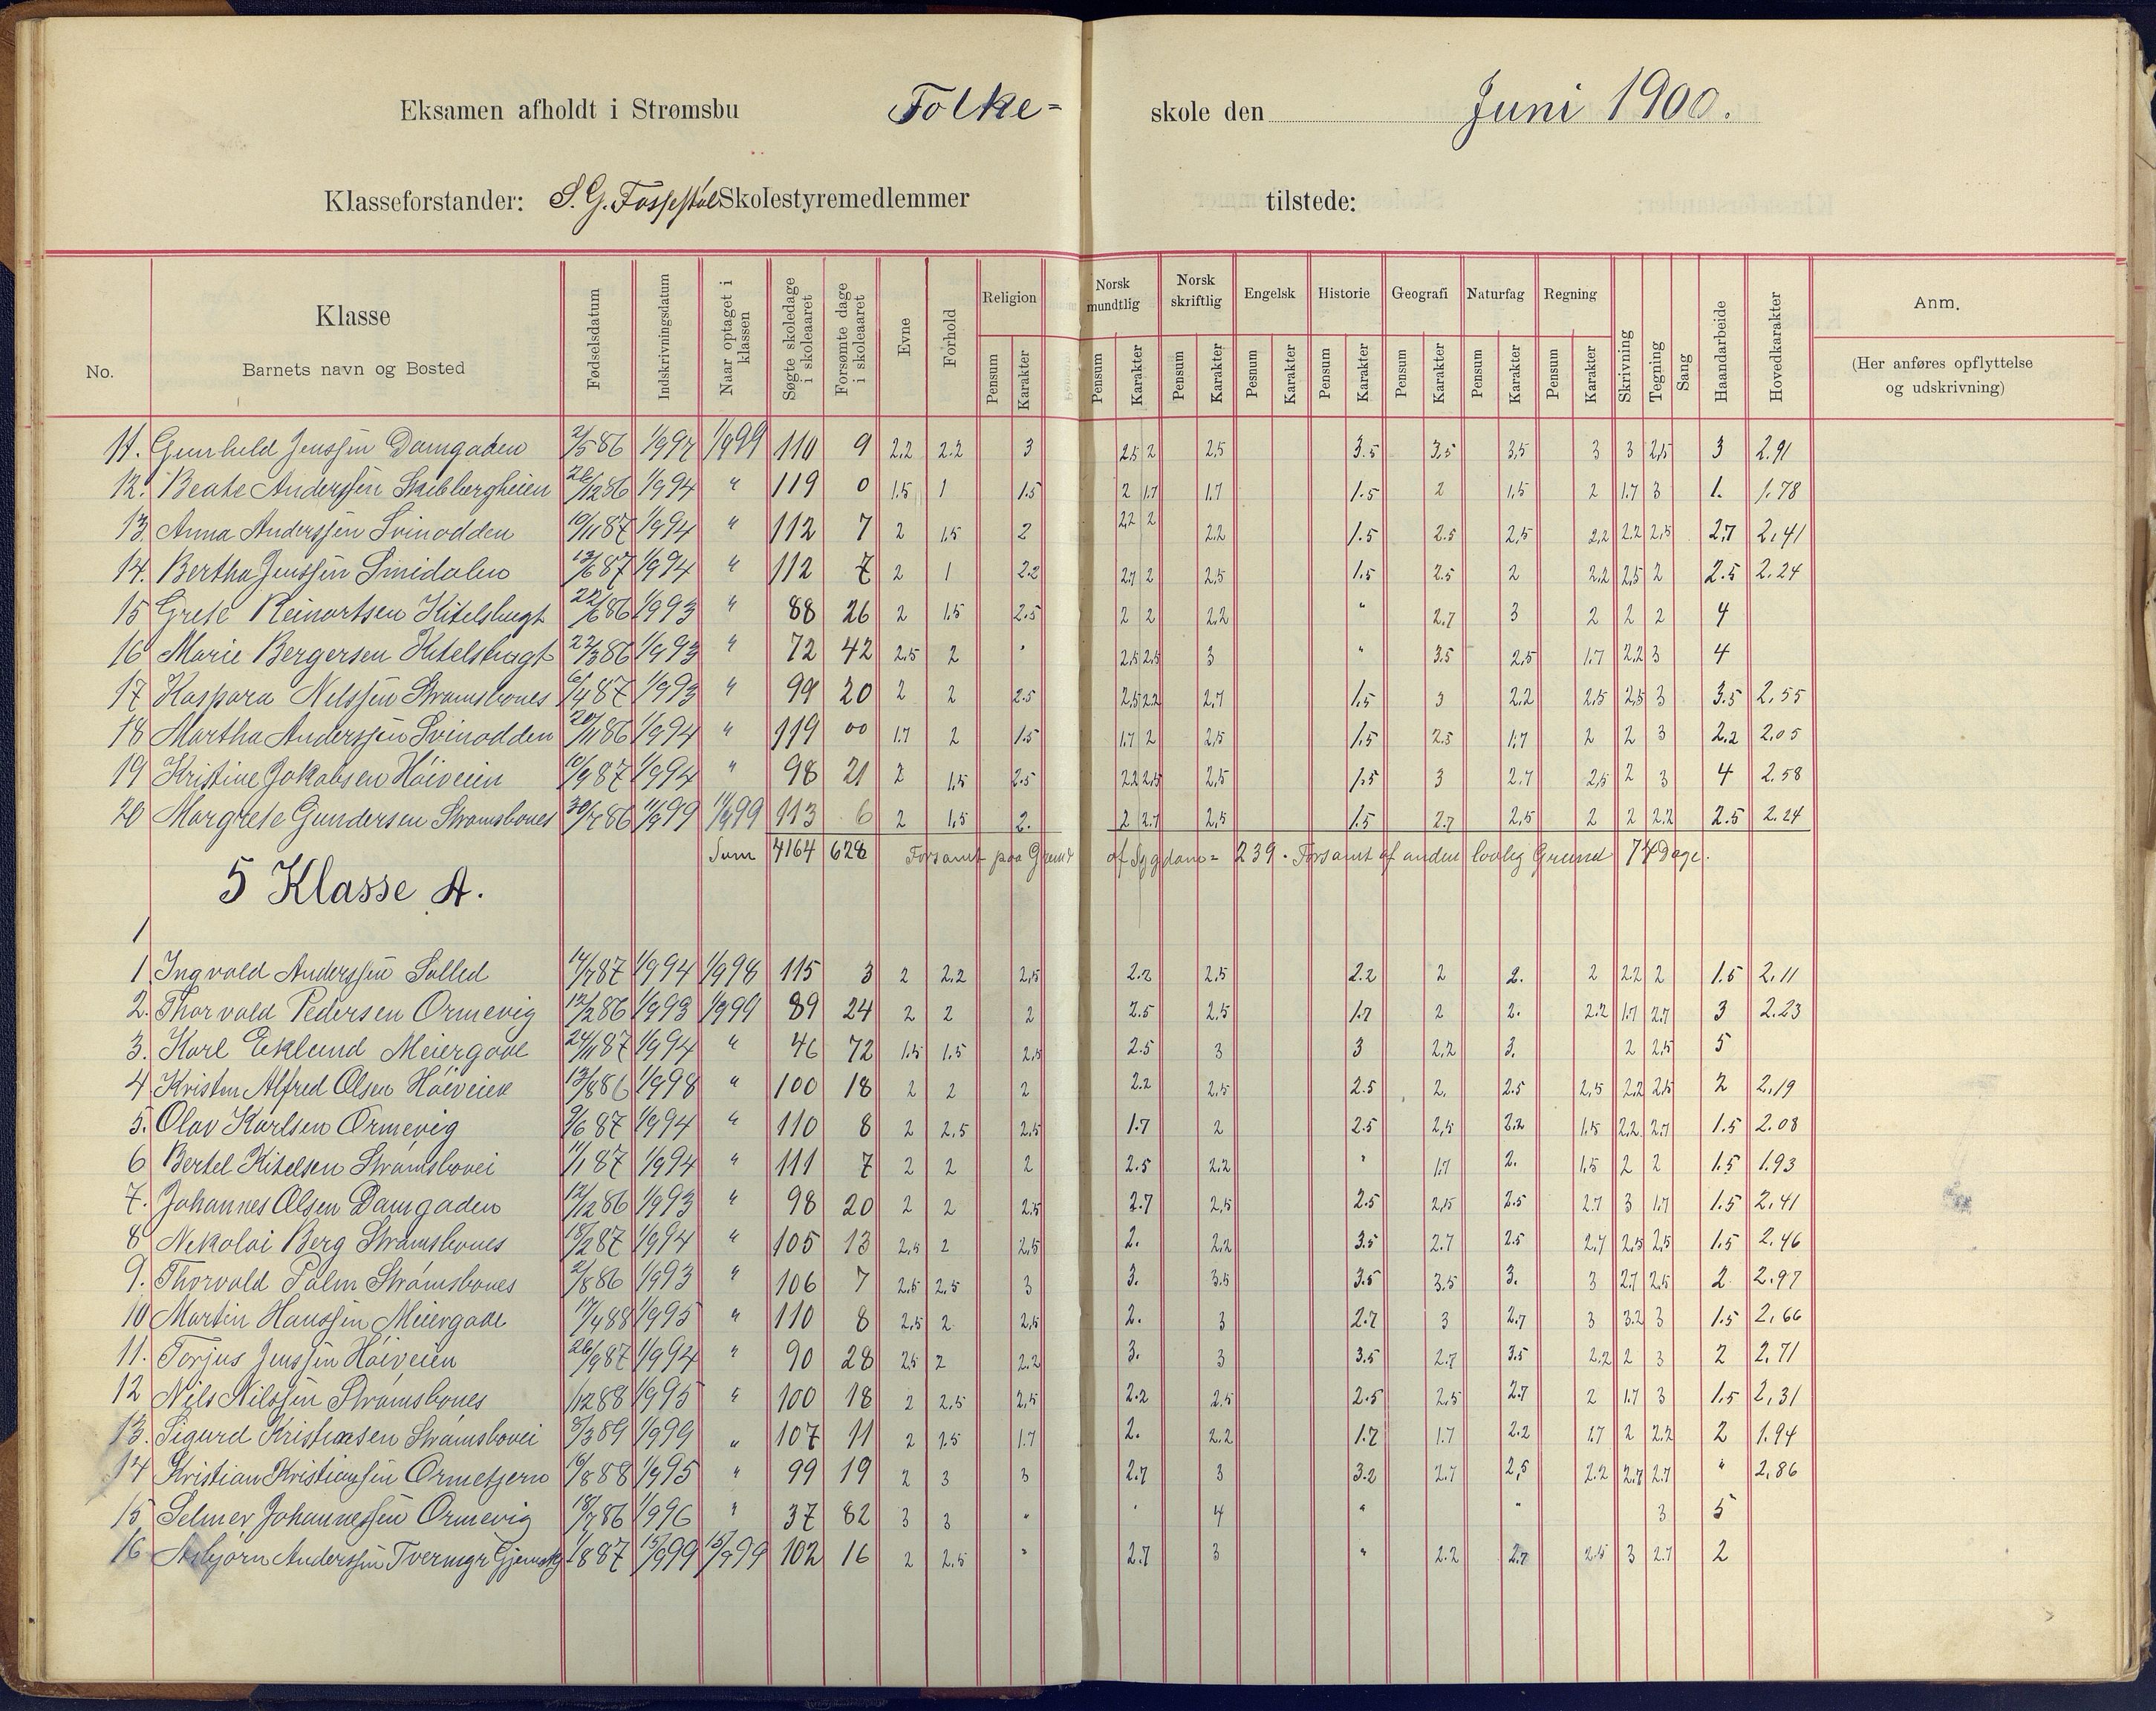 Eksamen afholdt i Strømsbu Folke- skole den Juni 1900.
Klasseforstander: S. G. Fosselstøl Skolestyremedlemmer tilstede:
No. Klasse Barnets navn og Bosted Fødselsdatum Indskrivningsdatum Naar optaget i klassen Søgte skoledage i skoleaaret Forsømte dage i skoleaaret Evne Forhold Religion Norsk mundtlig Norsk skriftlig Engelsk Historie Geografi Naturfag Regning Skrivning Tegning Sang Haandarbeide Hovedkarakter Anm.
Pensum Karakter Pensum Karakter Pensum Karakter Pesnum Karakter Pensum Karakter Pensum Karakter Pensum Karakter Pensum Karakter (Her anføres opflyttelse og udskrivning)
11. Gunhild Jenssen Damgaden 2/5 86 1/9 94 1/9 99 110 9 2,2 2.2 3 2,5 2 2,5 3.5 3,5 3,5 3 3 2,5 3 2.91
12. Beate Anderssen Skibbergheien 26/12 86 1/9 94 " 119 0 1.5 1 1.5 2 1.7 1.7 1.5 2 1,5 2 1.7 3 1. 1.78
13. Anna Anderssen Svinodden 10/11 87 1/9 94 " 112 7 2 1,5 2 2,2 2 2.2 1.5 2.5 2,5 2,2 2.2 2,5 2,7 2,41
14. Bertha Jenssen Smidalen 13/6 87 1/9 94 " 112 7 2 1 2.2 2,7 2 2,5 1.5 2.5 2 2.2 2,5 2 2.5 2.24
15 Grete Reinortsen Kitelsbugt 22/6 86 1/9 93 " 88 26 2 1.5 2.5 2 2 2.2 " 2,7 3 2 2 2 4
16 Marie Bergersen Kitelsbugt 27/3 86 1/9 93 " 72 42 2,5 2 " 2,5 2,5 3 " 3.5 2,5 1.7 2.2 3 4
17 Kaspara Nilssen Strømsbones 6/4 87 1/9 93 " 99 20 2 2 2.5 2,5 2.2 2,7 1.5 3 2.2 2,5 2,5 3 3.5 2,55
18 Martha Anderssen Svinodden 20/11 86 1/9 94 " 119 00 1.7 2 1.5 1.7 2 2,5 1.5 2.5 1.7 2 2 3 2.2 2,05
19 Kristine Jakobsen Høiveien 10/9 87 1/9 94 " 98 21 2 1,5 2.5 2.2 2,5 2,5 1.5 3 2.7 2,5 2 3 4 2.58
20 Margrete Gundersen Strømsbones 30/7 86 11/9 99 11/9 99 113 6 2 1,5 2. 2 2.7 2,5 1.5 2.7 2,5 2 2 2.2 2.5 2.24
Sum 4164 628 Forsømt paa Grund af Sygdom = 239. Forsømt af anden lovlig Grund 74 Dage.
5 Klasse A.
1
1 Ingvald Anderssen Solled 14/7 87 1/9 94 1/9 98 115 3 2 2.2 2,5 2.2 2,5 2.2 2 2. 2 2.2 2 1.5 2,11
2. Thorvald Pedersen Ormevig 12/2 86 1/9 93 1/9 99 89 24 2 2 2 2.5 2,5 1.7 2 2. 2.2 1.7 2.7 3 2.23
3. Karl Eklund Meiergade 24/11 87 1/9 94 " 46 72 1.5 1.5 2,5 2.5 3 3 2,2 3. 2 2,5 5
4 Kristen Alfred Olsen Høiveien 13/8 86 1/9 98 " 100 18 2 2 2 2.2 2,5 2.5 2. 2.5 2,5 2.2 2,5 2 2,19
5. Olav Karlsen Ormevig 9/6 87 1/9 94 " 110 8 2 2.5 2,5 1.7 2 2.5 2,5 2.2 1.5 2.2 2.7 1.5 2.08
6 Bertel Kitelsen Strømsbovei 11/1 87 1/9 94 " 111 7 2 2 2 2.5 2.2 " 1.7 2. 1,5 2 2 1.5 1.93
7. Johannes Olsen Damgaden 12/12 86 1/9 93 " 98 20 2 2 2.5 2.7 2,5 2.5 2,5 2.5 2.7 3 1.7 1.5 2,41
8 Nikolai Berg Strømsbones 18/2 87 1/9 94 " 105 13 2,5 2 2,5 2. 2.2 3.5 2.7 2.5 2.7 2,5 2,5 1.5 2.46
9. Thorvald Palm Strømsbones 2/8 86 1/9 93 " 106 7 2.5 2.5 3 3. 3.5 3.5 3.5 3. 3 2.7 2.5 2 2.97
10 Martin Hanssen Meiergade 17/4 88 1/9 95 " 110 8 2,5 2 2,5 2. 3 2.7 3 2.7 3 3.2 3 1.5 2,66
11. Torjus Jenssen Høiveien 26/9 87 1/9 94 " 90 28 2.5 2 2.2 3. 3 3.5 2.7 3.5 2.2 2 3 2 2,71
12 Nils Nilssen Strømsbones 1/12 88 1/9 95 " 100 18 2 2,5 2,5 2.2 2.5 2.5 2,5 2.7 2 1.7 3 1.5 2,31
13. Sigurd Kristiansen Strømsbovei 8/3 89 1/9 99 " 107 11 2 1.5 1.7 2. 2.2 1.7 1.7 2.2 1.7 2 2.2 2 1.94
14 Kristian Kristianssen Ormetjern 16/8 88 1/9 95 " 99 19 2 3 3 2.7 3 3.2 2.7 2,5 2.2 2.7 2.7 " 2,86
15 Selmer Johannessen Ormevig 18/7 86 1/9 96 " 37 82 3 3 " " 4 " " 3 5
16 Asbjørn Anderssen Tvermgr 1/8 87 15/9 99 15/9 99 102 16 2 2,5 " 2.7 3 " 2.2 2.7 2.5 3 2.7 2